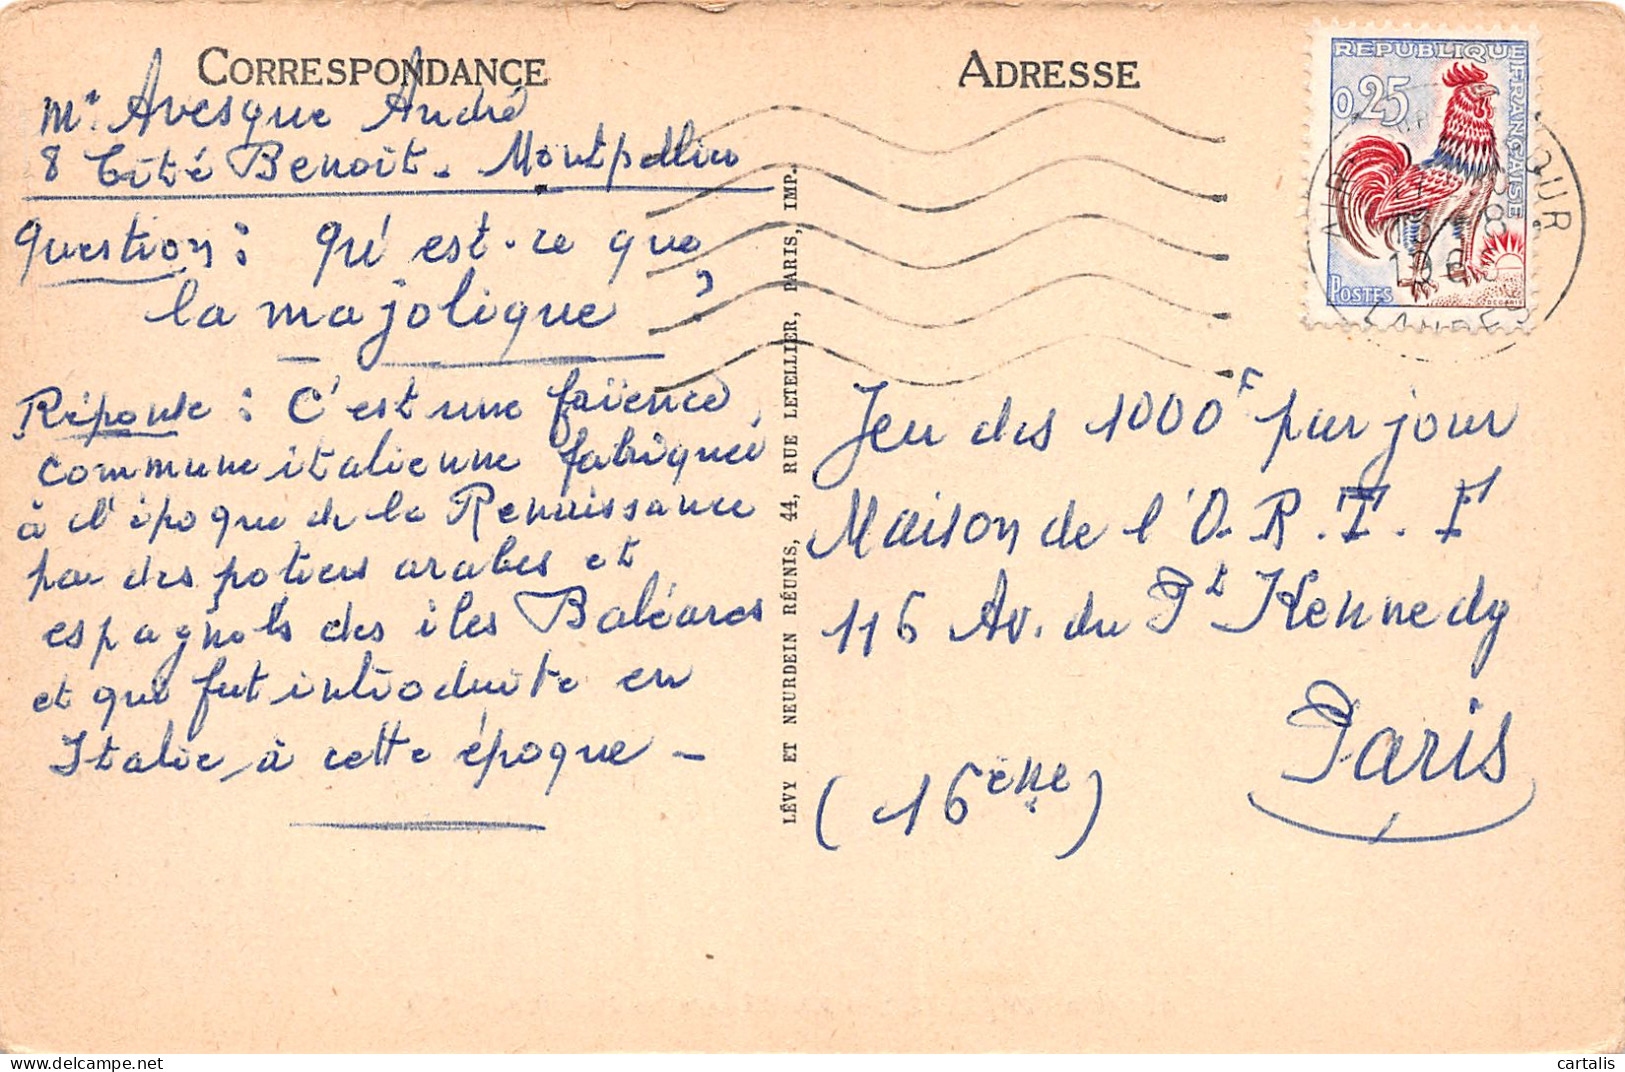 CORRESPONDANCE
Mr. Avesque André
8 Cité Benoît. Montpellier
Question : Qu'est-ce que
la majolique ?
Réponse : C'est une faïence
commune italienne fabriquée
à l'époque de la Renaissance
par des potiers arabes et
espagnols des îles Baléares
et qui fut introduite en
Italie à cette époque -
LÉVY ET NEURDEIN RÉUNIS, 44, RUE LETELLIER, PARIS, IMP.
ADRESSE
REPUBLIQUE FRANÇAISE
0,25
POSTES
DECARIS
AIRE
ADOUR
LANDES
Jeu des 1000F par jour
Maison de l'O.R.T.F
116 Av. du Pt Kennedy
Paris
(16ème)
cartalis